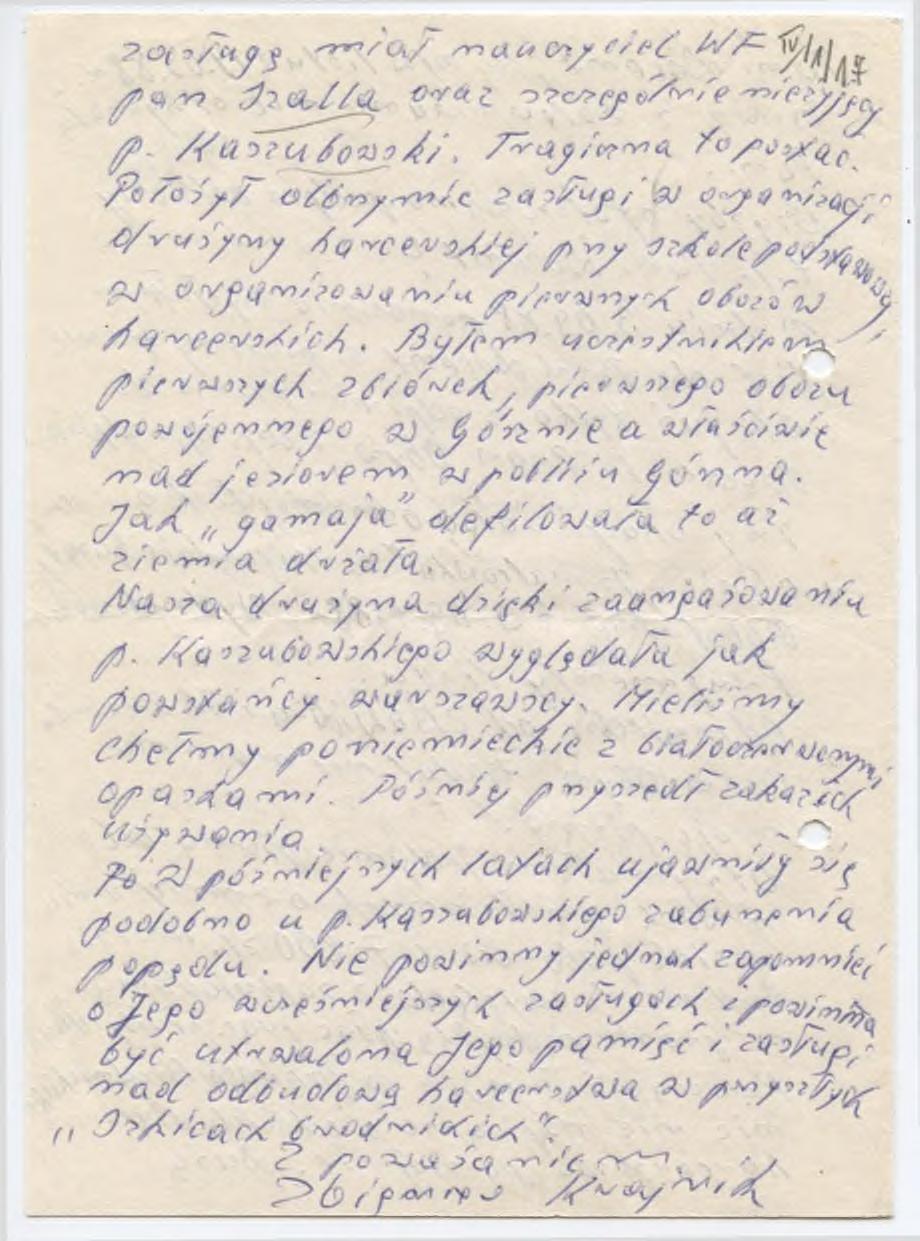 zasługę miał nauczyciel WF IV/1/17
pan Szalla oraz szczególnie nieżyjący
p. Kaszubowski. Tragiczna to postać.
Położył olbrzymie zasługi w organizacji
drużyny harcerskiej przy szkole podstawowej,
w organizowaniu pierwszych obozów
harcerskich. Byłem uczestnikiem
pierwszych zbiórek, pierwszego obozu
powojennego w Górznie a właściwie
nad jeziorem w pobliżu Górzna.
Jak „gamaja” defilowała to aż
ziemia drżała.
Nasza drużyna dzięki zaangażowaniu
p. Kaszubowskiego wyglądała jak
powstańcy warszawscy. Mieliśmy
chełmy poniemieckie z białoczerwonymi
opaskami. Później przyszedł zakaz ich
używania.
Po w późniejszych latach ujawniły się
podobno u p. Kaszubowskiego zaburzenia
popędu. Nie powinny jednak zapomnieć
o Jego wcześniejszych zasługach i powinna
być utrwalona Jego pamięć i zasługi
nad odbudową harcerstwa w przyszłych
„Szkicach brodnickich”.
Z poważaniem
Zbigniew Krajnik